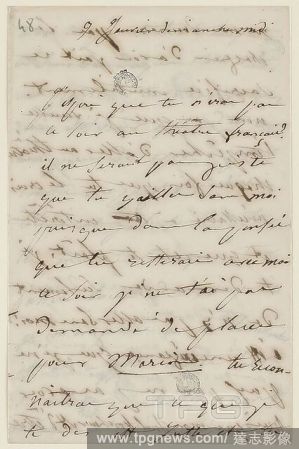 48
9 janvier dimanche midi
J'espère que tu n'iras pas
ce soir au théâtre français.
il ne serait pas juste
que tu y ailles sans moi
puisque dans la pensée
que tu resterais avec moi
ce soir je ne t'ai pas
demandé de place
pour Marie tu recon-
naîtras que ce que je
te
TPG
www.tpgnews.com/達志影像